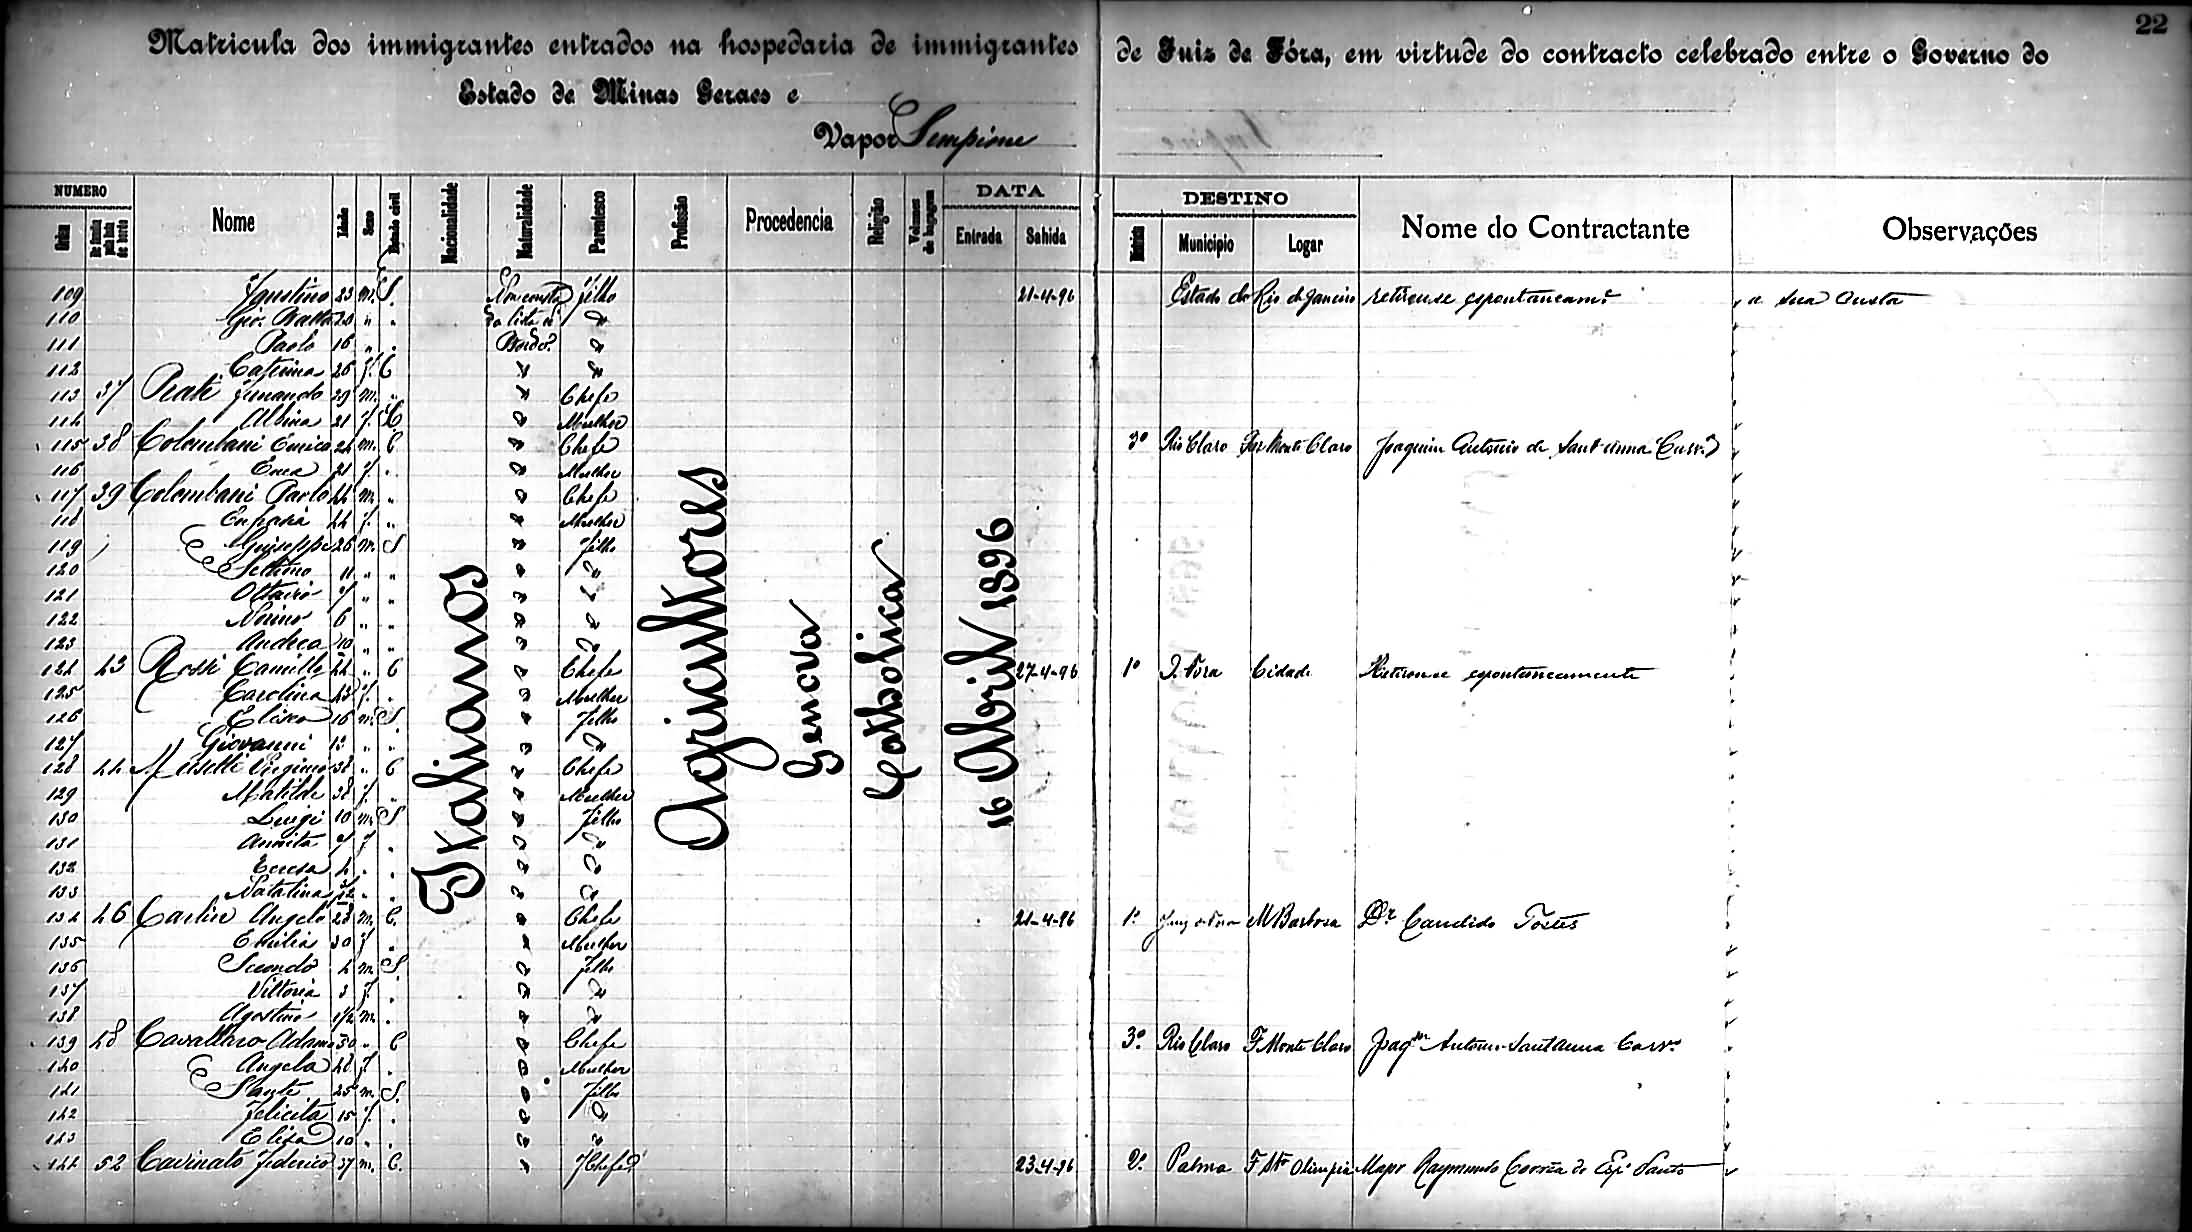 22
Matricula dos immigrantes entrados na hospedaria de immigrantes de Juiz de Fóra, em virtude do contracto celebrado entre o Governo do
Estado de Minas Geraes e
Vapor Sempione
NUMERO DATA DESTINO
Ordem Nome Idade Sexo Estado civil Nacionalidade Naturalidade Parentesco Profissão Procedencia Religião Volumes de bagagem Entrada Sahida Municipio Logar Nome do Contractante Observações
Italianos
Agricultores
Genova
Catholica
16 Abril 1896
109 Faustino 23 m. S. Non consta filho 21-4-96 Estado do Rio de Janeiro retirouse espontaneamte a sua custa
110 Gio. Batta 20 " " da lista de "
111 Paolo 16 " " Bordo "
112 Caterina 26 f. C " "
113 37 Prati Fernando 29 m. " " Chefe
114 Albina 21 f. C " Mulher
115 38 Colombani Enrico 24 m. C " Chefe 3º Rio Claro Faz Monte Claro Joaquim Antonio de Sant'Anna
116 21 f. " " Mulher
117 39 Colombani Paolo 44 m. " " Chefe
118 44 f. " " Mulher
119 Guiseppe 26 m. S " Filho
120 Settimo 11 " " " "
121 Ottavio 7 " " " "
122 6 " " " "
123 Andrea 10 " " " "
124 43 Rossi Camillo 44 " C " Chefe 27-4-96 1º J. Fora Cidade Retirouse espontaneamente
125 Carolina 43 f. " " Mulher
126 Eliseo 16 m. S " Filho
127 Giovanni 13 " " " "
128 44 38 " C " Chefe
129 Matilde 38 f. " " Mulher
130 Luigi 10 m. S " Filho
131 Annita 7 f. " " "
132 Teresa 4 " " " "
133 Natalina " " " "
134 46 Carlin Angelo 28 m. C. " Chefe 21-4-96 1º Juiz de Fora M Barbosa Dr Candido Tostes
135 Emilia 30 f " " Mulher
136 Secondo 4 m. S. " filho
137 Vittoria 3 f. " " "
138 Agostino 1/2 m. " " "
139 48 Cavallaro Adamo 30 " C " Chefe 3º Rio Claro F Monte Claro Joaqm Antonio Santanna Carvo
140 Angela 48 f " " Mulher
141 Sante 25 m. S. " Filho
142 Felicita 15 f. " " "
143 Elisa 10 " " " "
144 52 Cavinato Federico 37 m. C. " Chefe 23-4-96 2º Palma F Sta Olimpia Major Raymundo Corrêa do Espo Santo